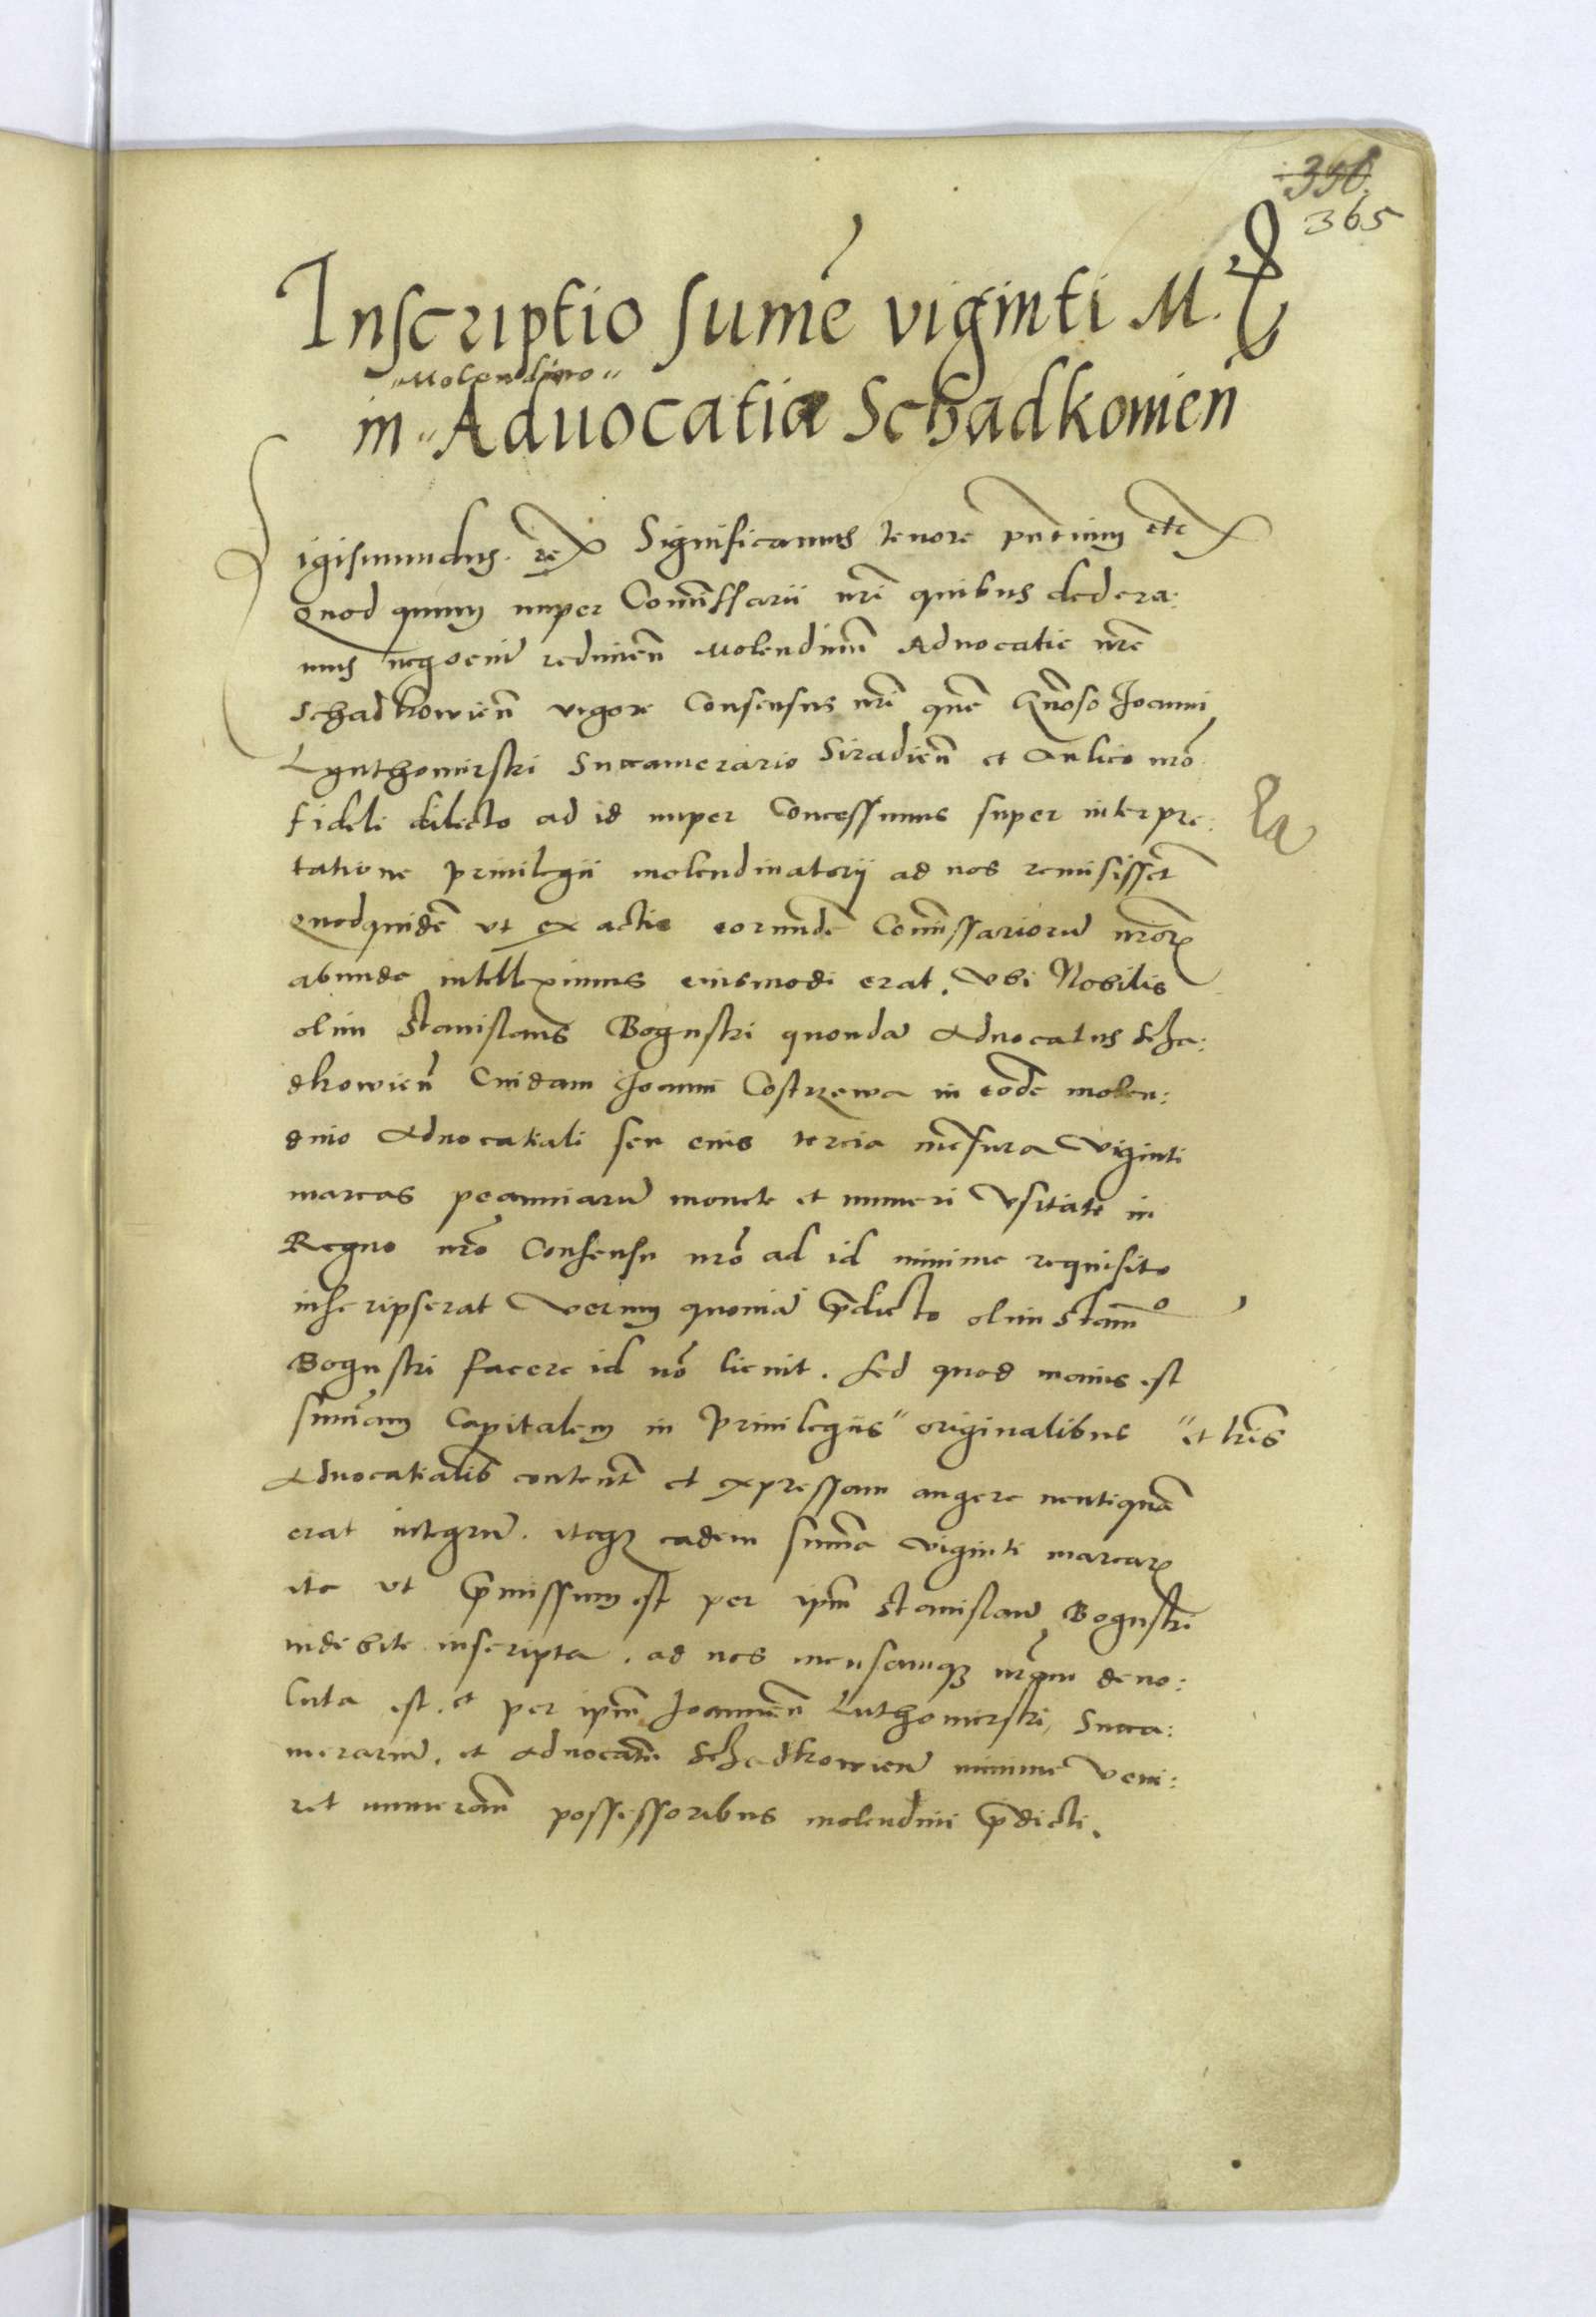 350.
365
Inscriptio sume viginti M.
"Molendino"
in "Aduocatia Schadkowien̄
Sigismundus. rex Significamus tenore pn̄tium etc
Quod quum nuper Com̄issarii nr̄i quibus dedera:
mus negociū redimen̄ Molendinū Aduocatie nr̄e
Schadkowien̄ vigore Consensus nr̄i quē Gn̄oso Joanni
Lythomirski Succamerario Siradien̄ et Aulico nr̄o
fideli dilecto ad id nuper Concessimus super interpre:
tatione priuilegii molendinatorij ad nos remisissēt
Quodquidē vt ex actis eorundē Com̄issariorū nr̄or
abunde intelleximus eiusmodi erat. Vbi Nobilis
olim Stanislaus Boguski quondā Aduocatus Scha:
dkowien̄ Cuidam Joanni Costrzewa in eodē molen:
dino Aduocatiali seu eius tercia mēsura Viginti
marcas pecuniarū monete et numeri Vsitate in
Regno nr̄o Consensu nr̄o ad id minime requisito
inscripserat Verum quoniā p̄dicto olim Stan̄o
Boguski facere id nō licuit. Sed quod maius est
sum̄am Capitalem in Priuilegiis "originalibus" et lr̄is
Aduocatialib contentā et expressam augere neutiquā
erat integrū. itaq3 eadem sum̄a viginti marcar
ita vt p̄missum est per ipm̄ Stanislaū Boguski
indebite inscripta. ad nos mensamq3 nr̄am deuo:
luta est. et per ipm̄ Joannem Luthomirski, Succa:
merariū. et Aduocatū Schadkowien̄ minime Veni:
ret numeran̄ possessoribus molendini p̄dicti.